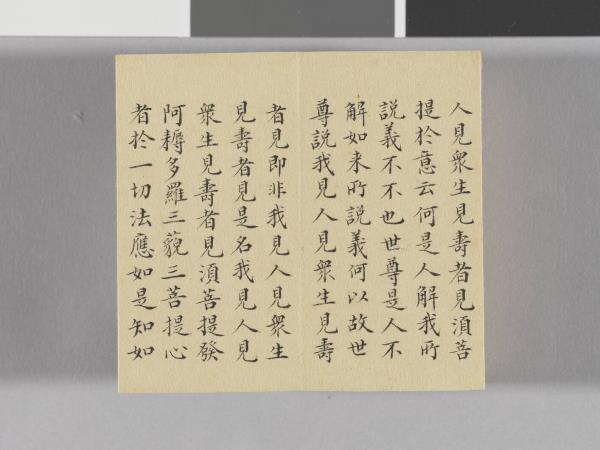 人見眾生見壽者見須菩
提於意云何是人解我所
說義不不也世尊是人不
解如来所說義何以故世
尊說我見人見眾生見壽
者見即非我見人見眾生
見壽者見是名我見人見
眾生見壽者見須菩提發
阿耨多羅三藐三菩提心
者於一切法應如是知如